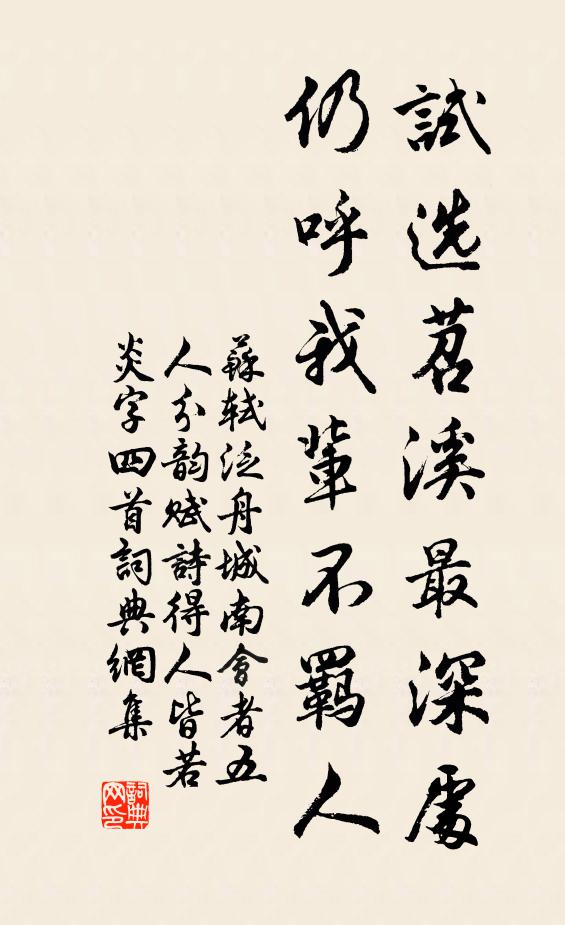 試选苕溪最深處
仍呼我輩不羈人
蘇軾泛舟城南會者五
人分韵賦詩得人皆若
炎字四首詞典網集
詞典
网印